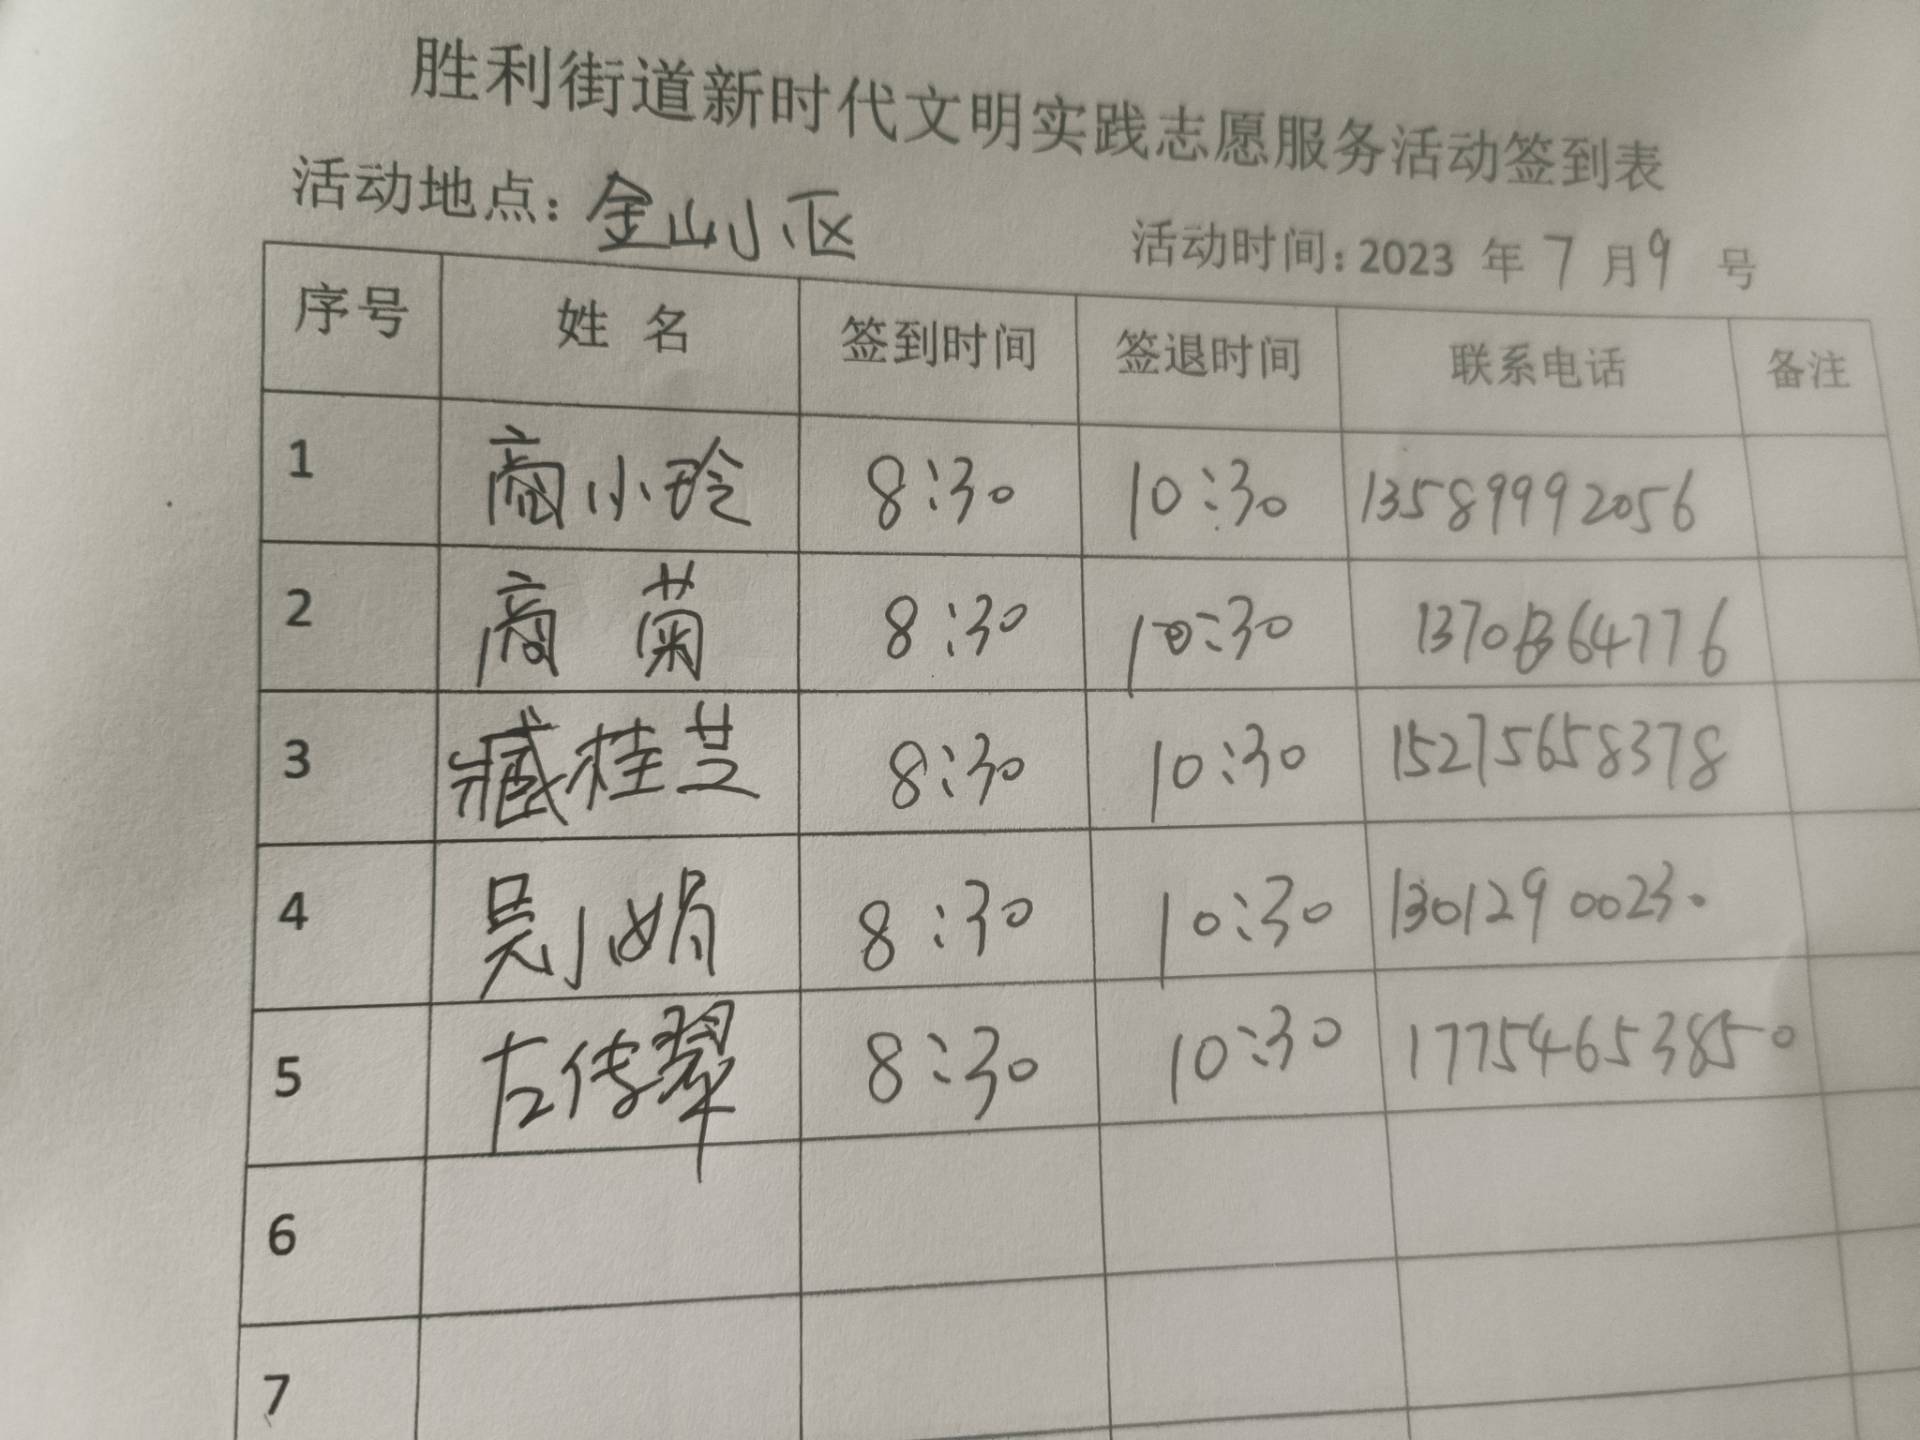 胜利街道新时代文明实践志愿服务活动签到表
活动地点：金山小区 活动时间：2023 年 7 月 9 号
序号 姓 名 签到时间 签退时间 联系电话 备注
1 商小玲 8:30 10:30 13589992056
2 商 菊 8:30 10:30 13701364776
3 臧桂芝 8:30 10:30 15275658378
4 吴小娟 8:30 10:30 13012900230
5 左传翠 8:30 10:30 17754653850
6
7